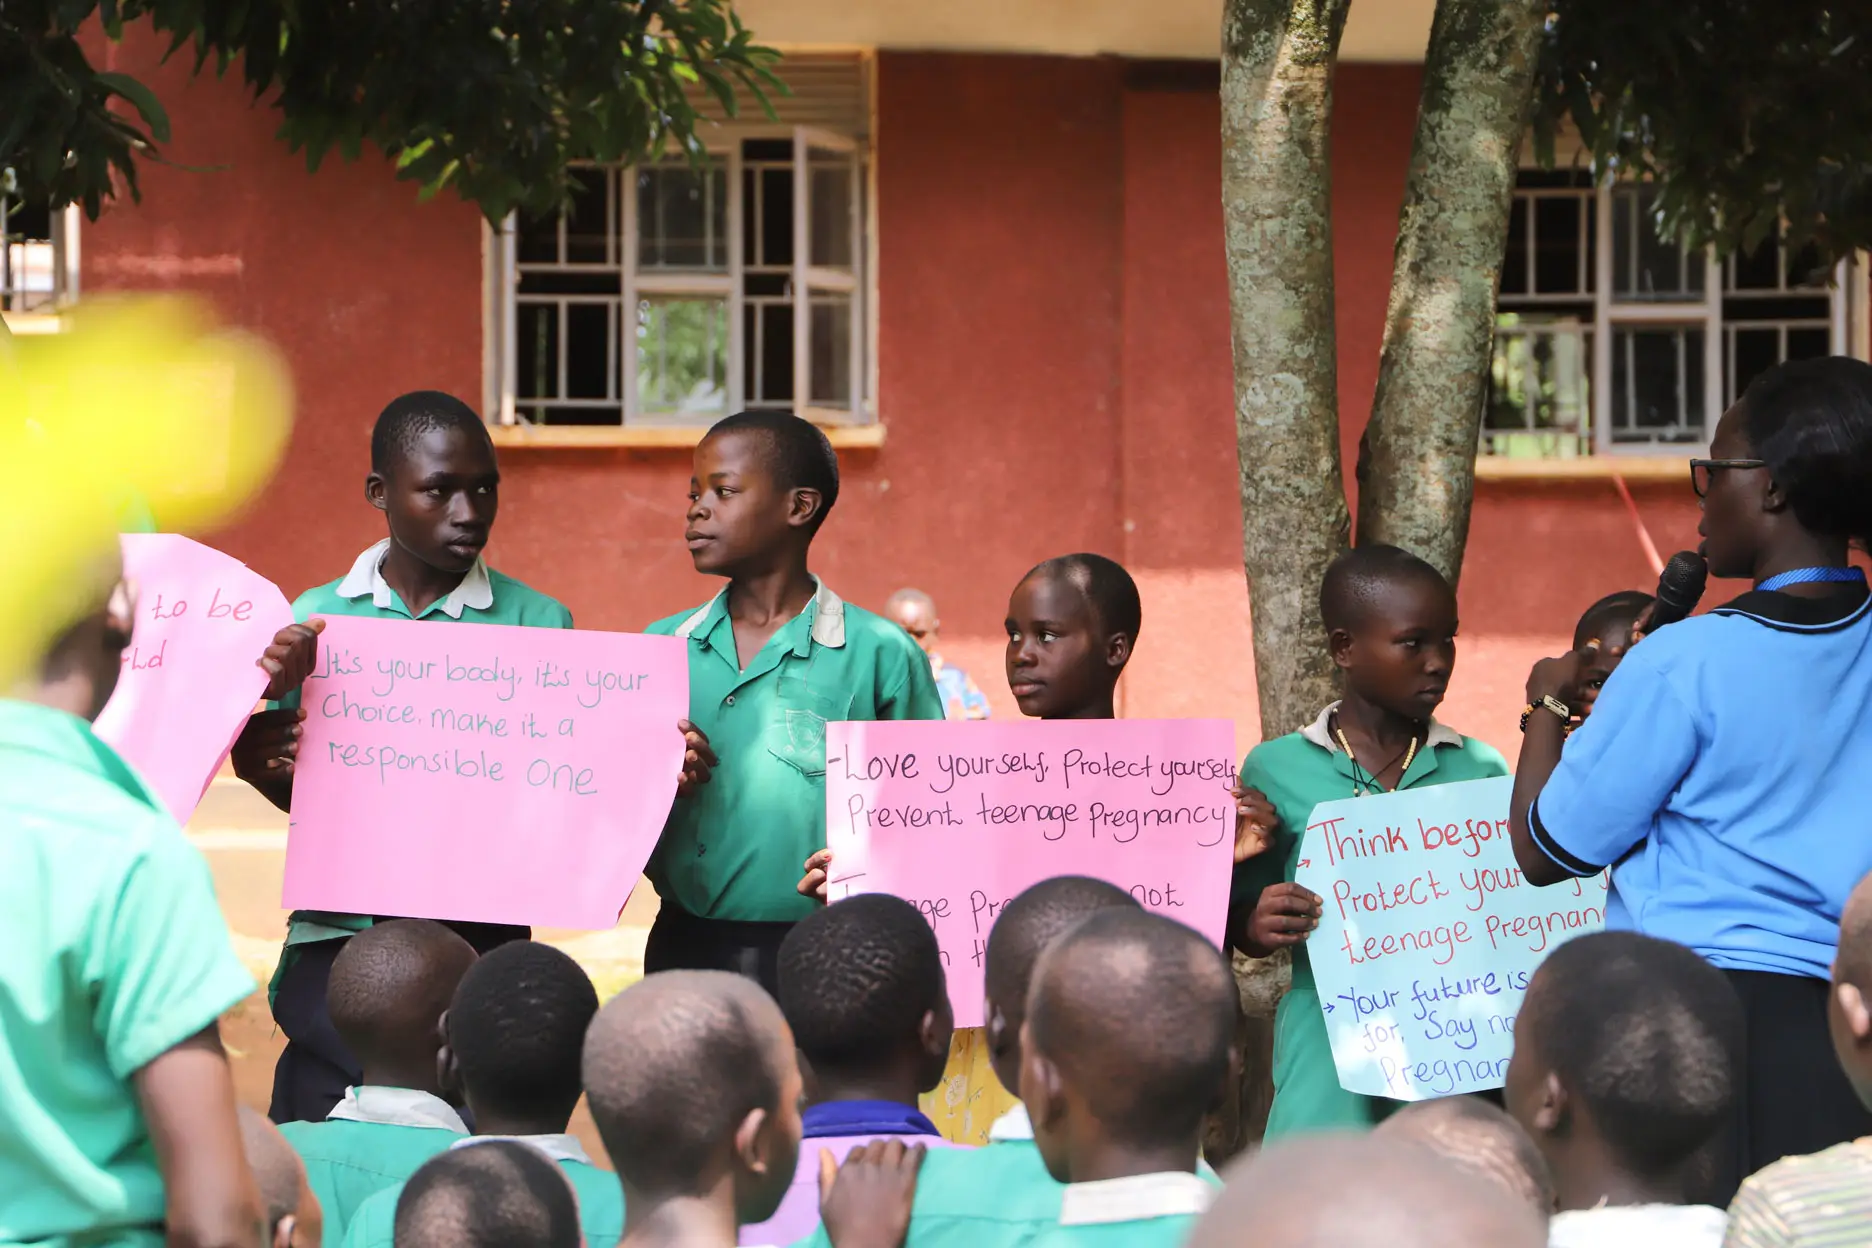 to be
It's your body, it's your
Choice. make it a
responsible one
-Love yourself, Protect yourself
Prevent teenage pregnancy
not
→ Think
Protect your
teenage Pregnan
→ Your future is
for, Say no
Pregnan